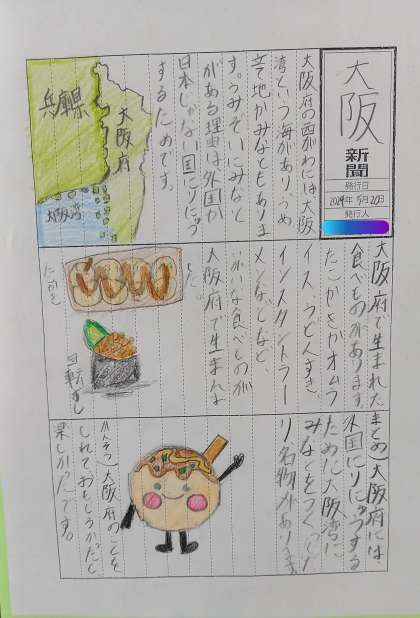 大阪
新聞
発行日
2024年 5月20日
発行人
大阪府の西がわには大阪
湾という海があり、うめ
立て地がみなともありま
す。うみぞいにみなと
がある理由は外国か
日本じゃない国にりにゅう
するためです。
兵庫県
大阪府
大阪湾
大阪府で生まれた
食べものがあります。
たこやきやオムラ
イス、うどんすき
インスタントラー
メンなどなど、
いろいろな食べものが
大阪府で生まれま
した。
たこやき
回転ずし
まとめ 大阪府には、
外国にりにゅうする
ために大阪湾に
みなとをつくった
り、名物があります
かんそう 大阪府のことを
しれておもしろかったし
楽しかったです。